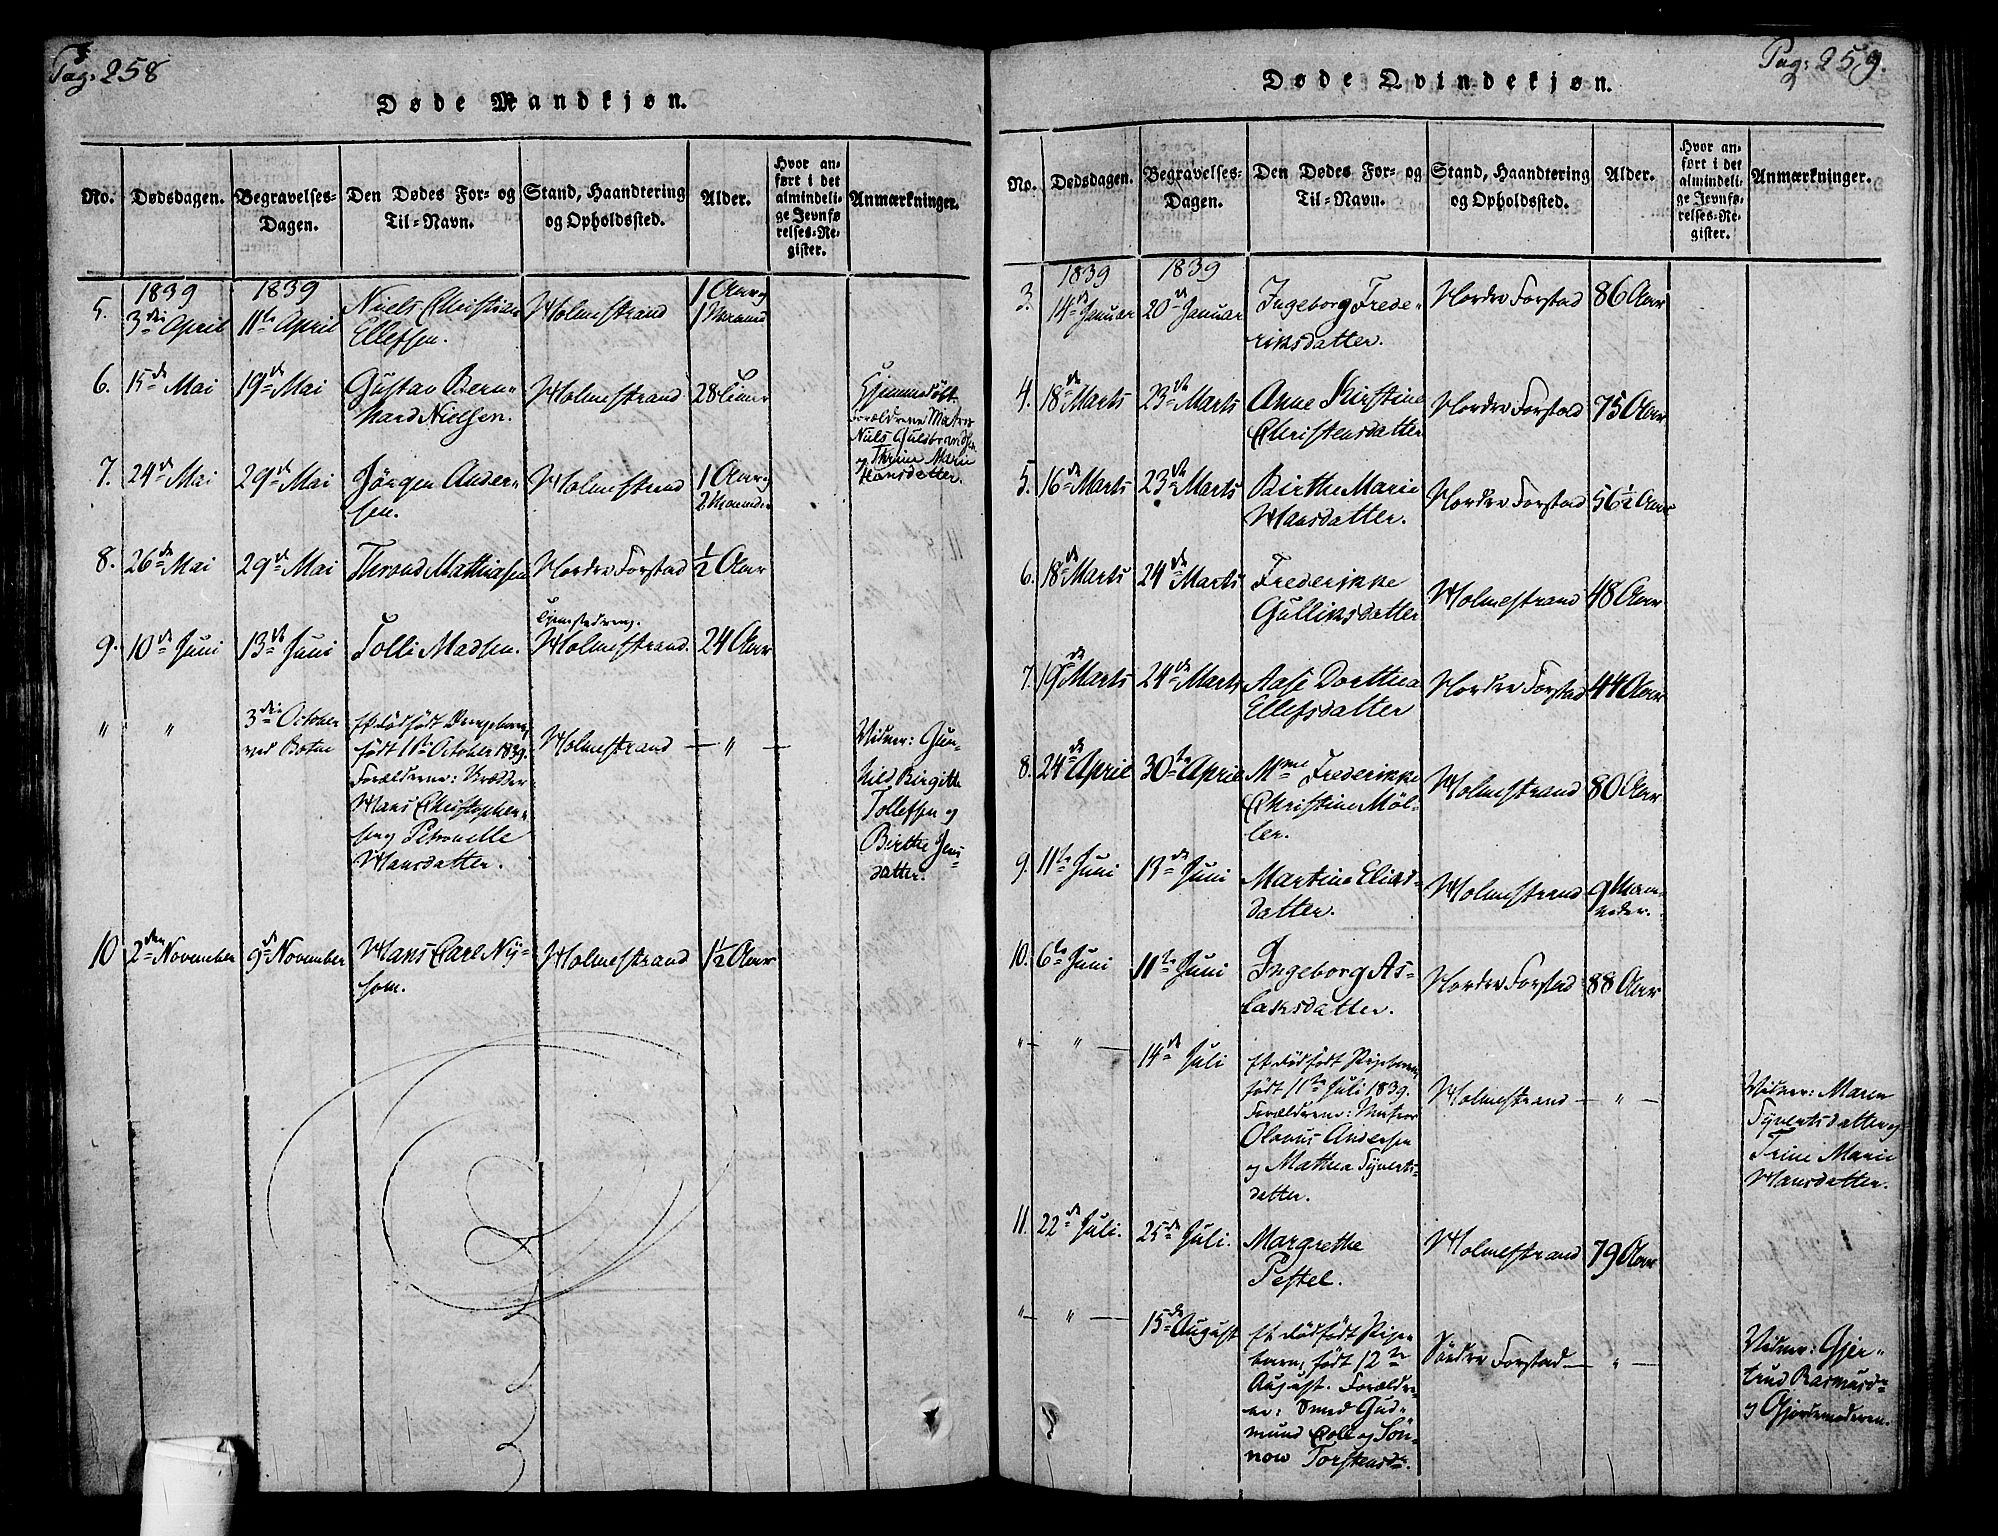 Pag: 258
Døde Mandkjøn.
No. Dødsdagen. Begravelses-Dagen. Den Dødes For- og Til-Navn. Stand, Haandtering og Opholdssted. Alder. Hvor anført i det almindelige Jevnførelses-Register. Anmærkninger.
1839 1839
5. 3die April 11te April Niels Christian Holmestrand 1 Aar og
Ellefsen. 1 Maaned
6. 15de Mai 19de Mai Gustav Bern- Holmestrand 28 Timer Hjemmedöbt.
hard Nielsen. Forældrene Matros
Niels Guldbrandsen
og Thrine Marie
Hansdatter.
7. 24de Mai 29de Mai Jörgen Ander- Holmestrand 1 Aar og
sen. 2 Maaneder
8. 26de Mai 29de Mai Thrond Mathiasen Nordre Forstad ½ Aar
9. 10de Juni 13de Juni Tolli Madsen. Holmestrand. 24 Aar
" " 3die October Et dödfödt Drengebarn,
ved Botne födt 1ste October 1839. Holmestrand — " — Vidner: Gun-
Forældrene:
Hans Christophersen
og Petronelle
Hansdatter.
hild Birgitte
Tollefsen og
Birthe Jens-
datter.
10 2den November 9de November Hans Carl Ny- Holmestrand 1½ Aar
som.
Pag: 259.
Døde Qvindekjøn.
No. Dødsdagen. Begravelses-Dagen. Den Dødes For- og Til-Navn. Stand, Haandtering og Opholdssted. Alder. Hvor anført i det almindelige Jevnførelses-Register. Anmærkninger.
1839 1839
3. 14de Januar 20de Januar Ingeborg Frede- Nordre Forstad 86 Aar
riksdatter.
4. 18de Marts 23de Marts Anne Kirstine Nordre Forstad 75 Aar
Christensdatter
5. 16de Marts 23de Marts Birthe Marie Nordre Forstad 56½ Aar
Hansdatter.
6. 18de Marts 24de Marts Frederikke Holmestrand 48 Aar
Gulliksdatter
7. 19de Marts 24de Marts Aase Dorthea Nordre Forstad 44 Aar
Ellefsdatter
8. 24de April 30te April Mme Frederikke Holmestrand 80 Aar
Christine Möl-
ler.
9. 11te Juni 13de Juni Martine Elias- Holmestrand 9 Maa-
datter. neder.
10. 6te Juni 11te Juni Ingeborg As- Nordre Forstad 88 Aar
laksdatter.
" " 14de Juli Et dödfödt Pigebarn,
födt 11te Juli 1839. Holmestrand — " — Vidner: Maren
Forældrene: Matros Syvertsdatter og
Olavus Andersen Trine Marie
og Mathea Syverts- Hansdatter.
datter.
11. 22de Juli. 25de Juli. Margrethe Holmestrand 79 Aar
Pestel.
" " 15de August Et dödfödt Pige-
barn, födt 12te Söndre Forstad — " — Vidner: Gjer-
August. Forældre- trud Rasmusdr
ne: Smed Gud- og Gjordemoderen.
mund Ole og Sön-
now Torstensdr.